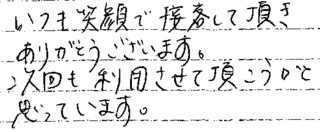 いつも笑顔で接客して頂き
ありがとうございます。
次回も利用させて頂こうかと
思っています。